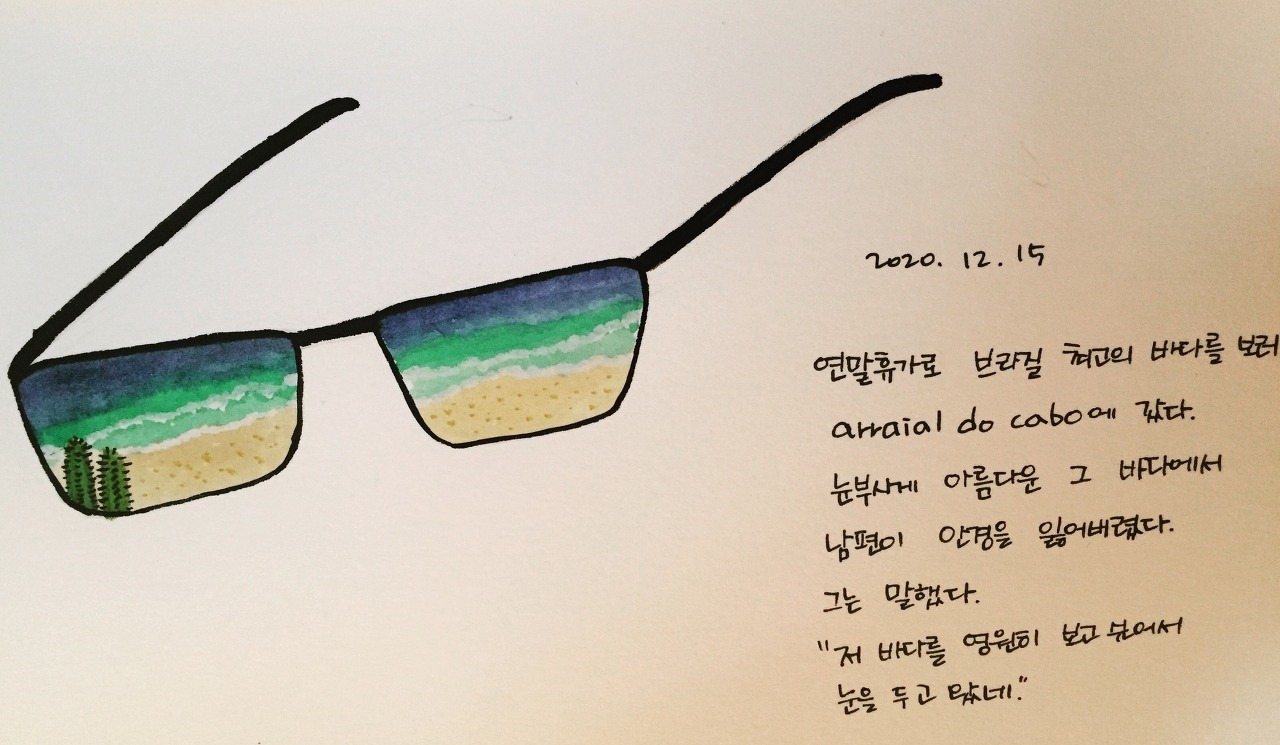 2020. 12. 15
연말휴가로 브라질 최고의 바다를 보러
arraial do cabo에 갔다.
눈부시게 아름다운 그 바다에서
남편이 안경을 잃어버렸다.
그는 말했다.
"저 바다를 영원히 보고 싶어서
눈을 두고 왔네."